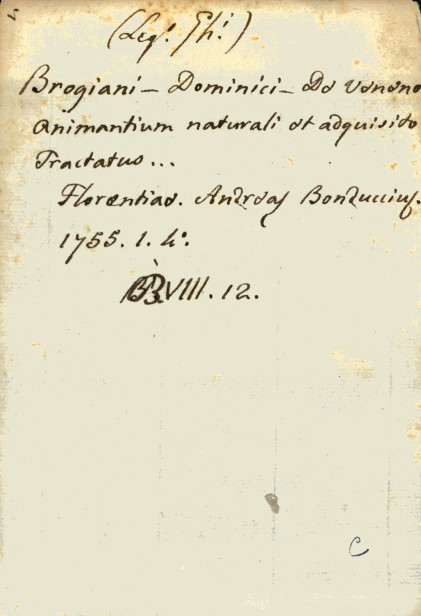 (Leg. Gh.)
Brogiani - Dominici - De veneno
Animantium naturali et adquisito
Tractatus...
Florentiae. Andreas Bonduccius.
1755. 1. 4º.
VIII. 12.
C